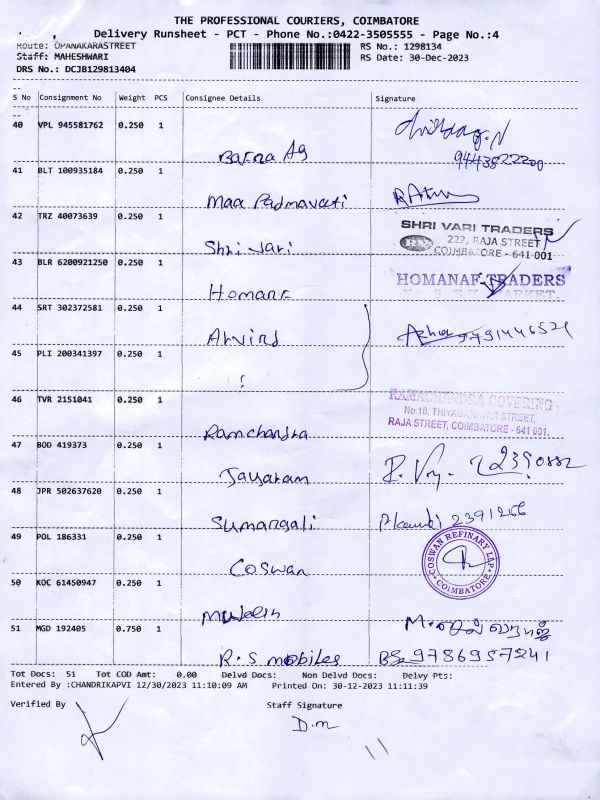 THE PROFESSIONAL COURIERS, COIMBATORE
Delivery Runsheet - PCT - Phone No.:0422-3505555 - Page No.:4
Route: OPANAKARASTREET
RS No.: 1298134
Staff: MAHESHWARI
RS Date: 30-Dec-2023
DRS No.: DCJB129813404
S No Consignment No Weight PCS Consignee Details Signature
40 VPL 945581762 0.250 1
9443822200
41 BLT 100935184 0.250 1
Maa Padmavati
42 TRZ 40073639 0.250 1
Shri Vari
SHRI VARI TRADERS
222, RAJA STREET
COIMBATORE - 641 001
43 BLR 6200921250 0.250 1
HOMANAF TRADERS
44 SRT 302372581 0.250 1
Arvind
45 PLI 200341397 0.250 1
46 TVR 2151041 0.250 1
Ramchandra
RAMACHANDRA COVERING
RAJA STREET, COIMBATORE - 641 001.
47 BOD 419373 0.250 1
Jayaram
48 JPR 502637620 0.250 1
Sumangali
2391266
49 POL 186331 0.250 1
Coswan
COSWAN REFINARY LAP
COIMBATORE
50 KOC 61450947 0.250 1
51 MGD 192405 0.750 1
R.S mobiles
9786957241
Tot Docs: 51 Tot COD Amt: 0.00 Delvd Docs: Non Delvd Docs: Delvy Pts:
Entered By :CHANDRIKAPVI 12/30/2023 11:10:09 AM Printed On: 30-12-2023 11:11:39
Verified By
Staff Signature